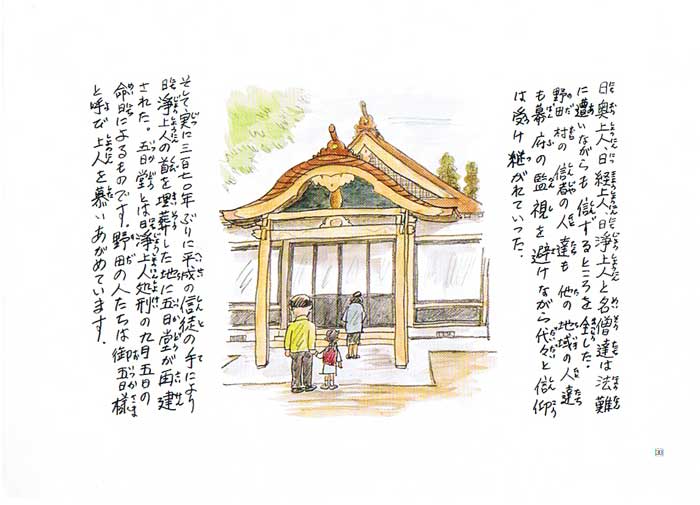 日奥上人日経上人日浄上人と名僧達は法難
に遭いながらも信ずるところを全した。
野田村の信者の人達も他の地域の人達
も幕府の監視を避けながら代々と信仰
は受け継がれていった。
そして実に三百七〇年ぶりに平成の信徒の手により
日浄上人の首を埋葬した地に五日堂が再建
された。五日堂とは日浄上人処刑の九月五日の
命日によるものです。野田の人たちは御五日様
と呼び上人を慕いあがめています。